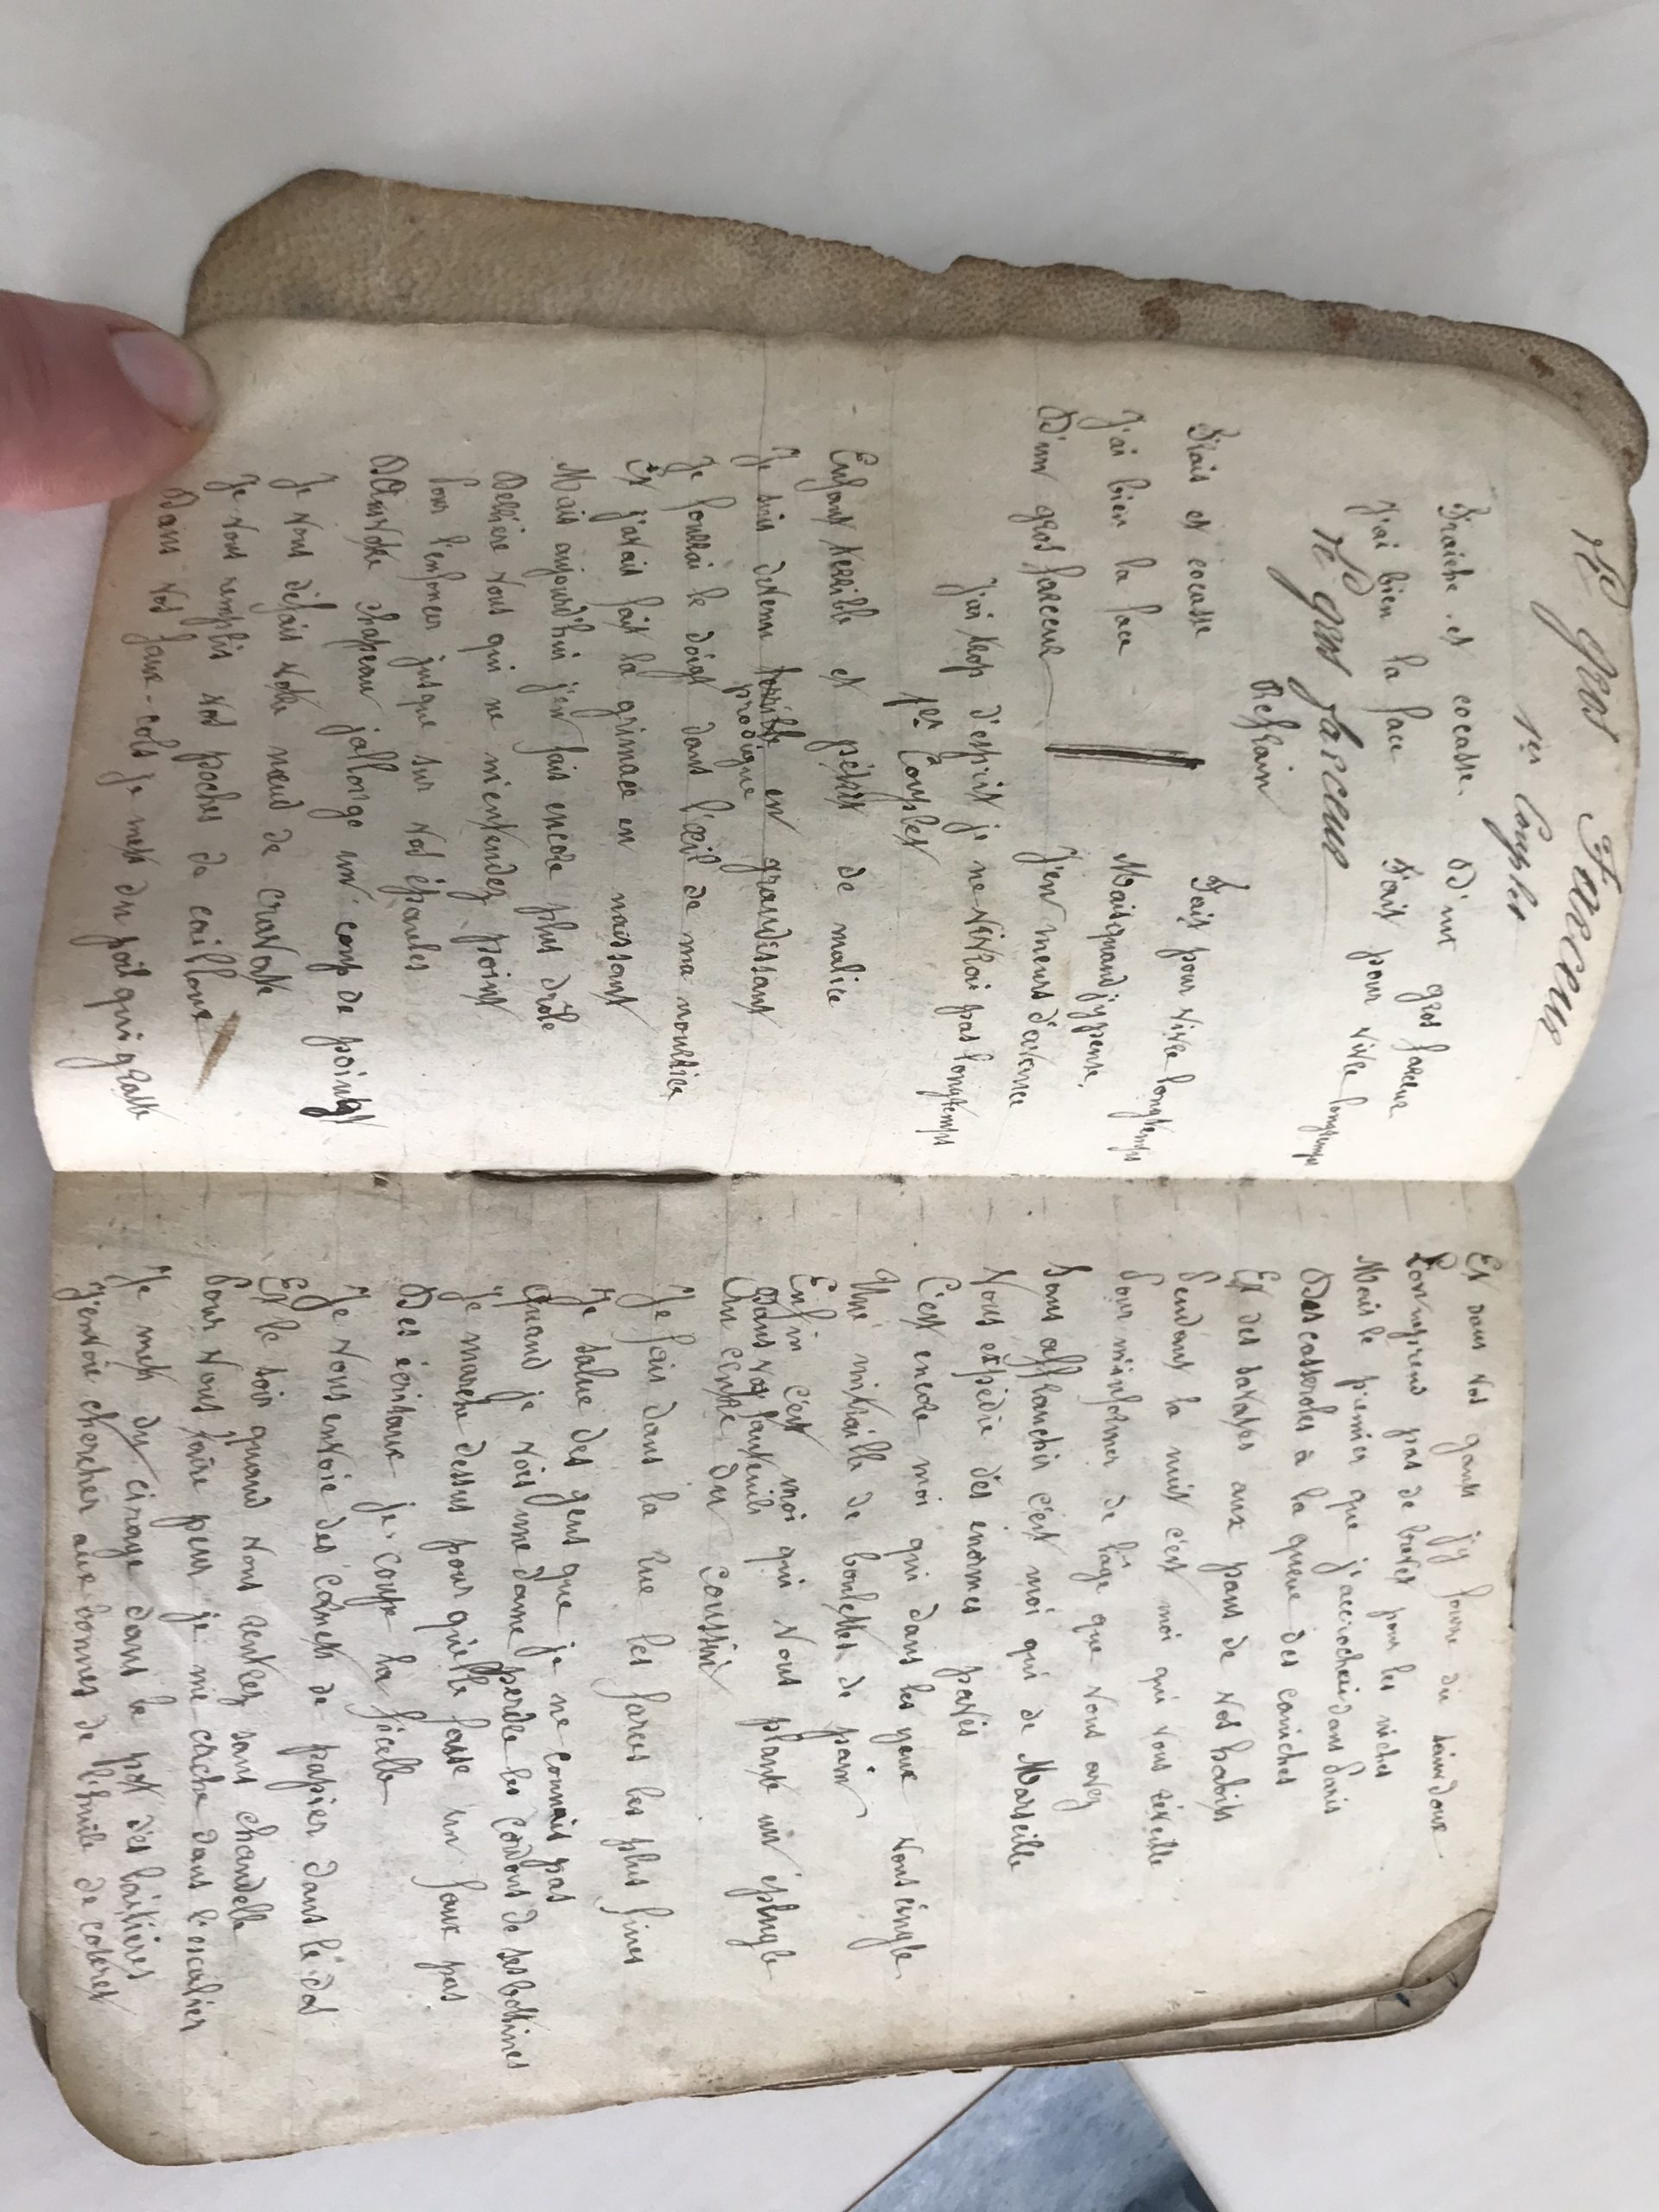 Le Gros Farceur
1er Couplet
Fraiche et cocasse. D'un gros farceur
J'ai bien la face Fait pour vivre longtemps
Le gros farceur
Refrain
Frais et cocasse Fait pour vivre longtemps
J'ai bien la face Mais quand j'y pense,
D'un gros farceur J'en meurs d'avance
J'ai trop d'esprit je ne vivrai pas longtemps
1er Couplet
Enfant terrible et pétrit de malice
Je suis devenu terrible en grandissant
prodigue
Je fourrai le doigt dans l'œil de ma nourrice
Et j'avais fait la grimace en naissant
Mais aujourd'hui j'en fais encore plus drôle
Derrière vous qui ne m'entendez point
Pour l'enfoncer jusque sur vos épaules
A votre chapeau j'allonge un coup de poingt
Je vous défais votre nœud de cravate
Je vous remplis vos poches de cailloux
Dans vos faux-cols je mets du poil qui gratte
Et dans vos gants j'y fourre du saindoux
L'on ne prend pas de brevet pour les niches
Mais le premier que j'accrochai dans Paris
Des casseroles à la queue des caniches
Et des savates aux pans de vos habits
Pendant la nuit c'est moi qui vous réveille
Pour m'informer de l'âge que vous avez
Sans affranchir c'est moi qui de Marseille
Vous expédie des énormes pavés
C'est encore moi qui dans les yeux vous cingle
Une mitraille de boulettes de pain
Enfin c'est moi qui vous plante un épingle
Dans vos fauteuils
Au centre du coussin
Je fais dans la rue les farces les plus fines
Je salue des gens que je ne connais pas
Quand je vois une dame perdre les cordons de ses bottines
Je marche dessus pour qu'elle fasse un faux pas
Des éritaux je coupe la ficelle
Je vous envoie des cornets de papier dans le dos
Et le soir quand vous rentrez sans chandelle
Pour vous faire peur je me cache dans l'escalier
Je mets du cirage dans le pot des laitières
J'envoie chercher aux bonnes de l'huile de coteret